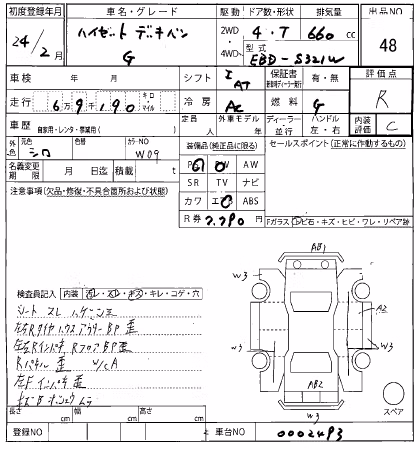 初度登録年月 車名・グレード 駆動 ドア数・形状 排気量 出品NO
24/2月 ハイゼット デッキバン G 2WD 4WD 4・T 660 cc 48
型式 EBD-S321W
車検 年 月 シフト I AT 保証書 有・無 評価点
走行 6万9千190 キロ・マイル 冷房 AC 燃料 G R
車歴 自家用・レンタ・事業用( ) 定員 人 外車モデル 年 ディーラー・並行 ハンドル 左・右 内装評価 C
外色 元色 シロ 色替 カラーNO W09 装備品(純正品に限る) セールスポイント(正常に作動するもの)
PS PW AW
名義変更期限 月 日迄 積載 t SR TV ナビ
注意事項(欠品・修復・不具合箇所および状態) カワ エアB ABS
R券 7,790 円 Fガラス(トビ石・キズ・ヒビ・ワレ・リペア跡)
AB1
W3 W3
A2
W3 W3
AB2
W3
スペア
検査員記入 内装(汚レ・スレ・キズ・キレ・コゲ・穴)
シート スレ ハゲ コゲ
左右Rタイヤハウスアウター BP 歪
左右Rインパネ Rフロア BP 歪
Rパネル 歪 W/CA
左Fインパネ 歪
長さ cm 幅 cm 高さ cm
登録NO 車台NO 0002493